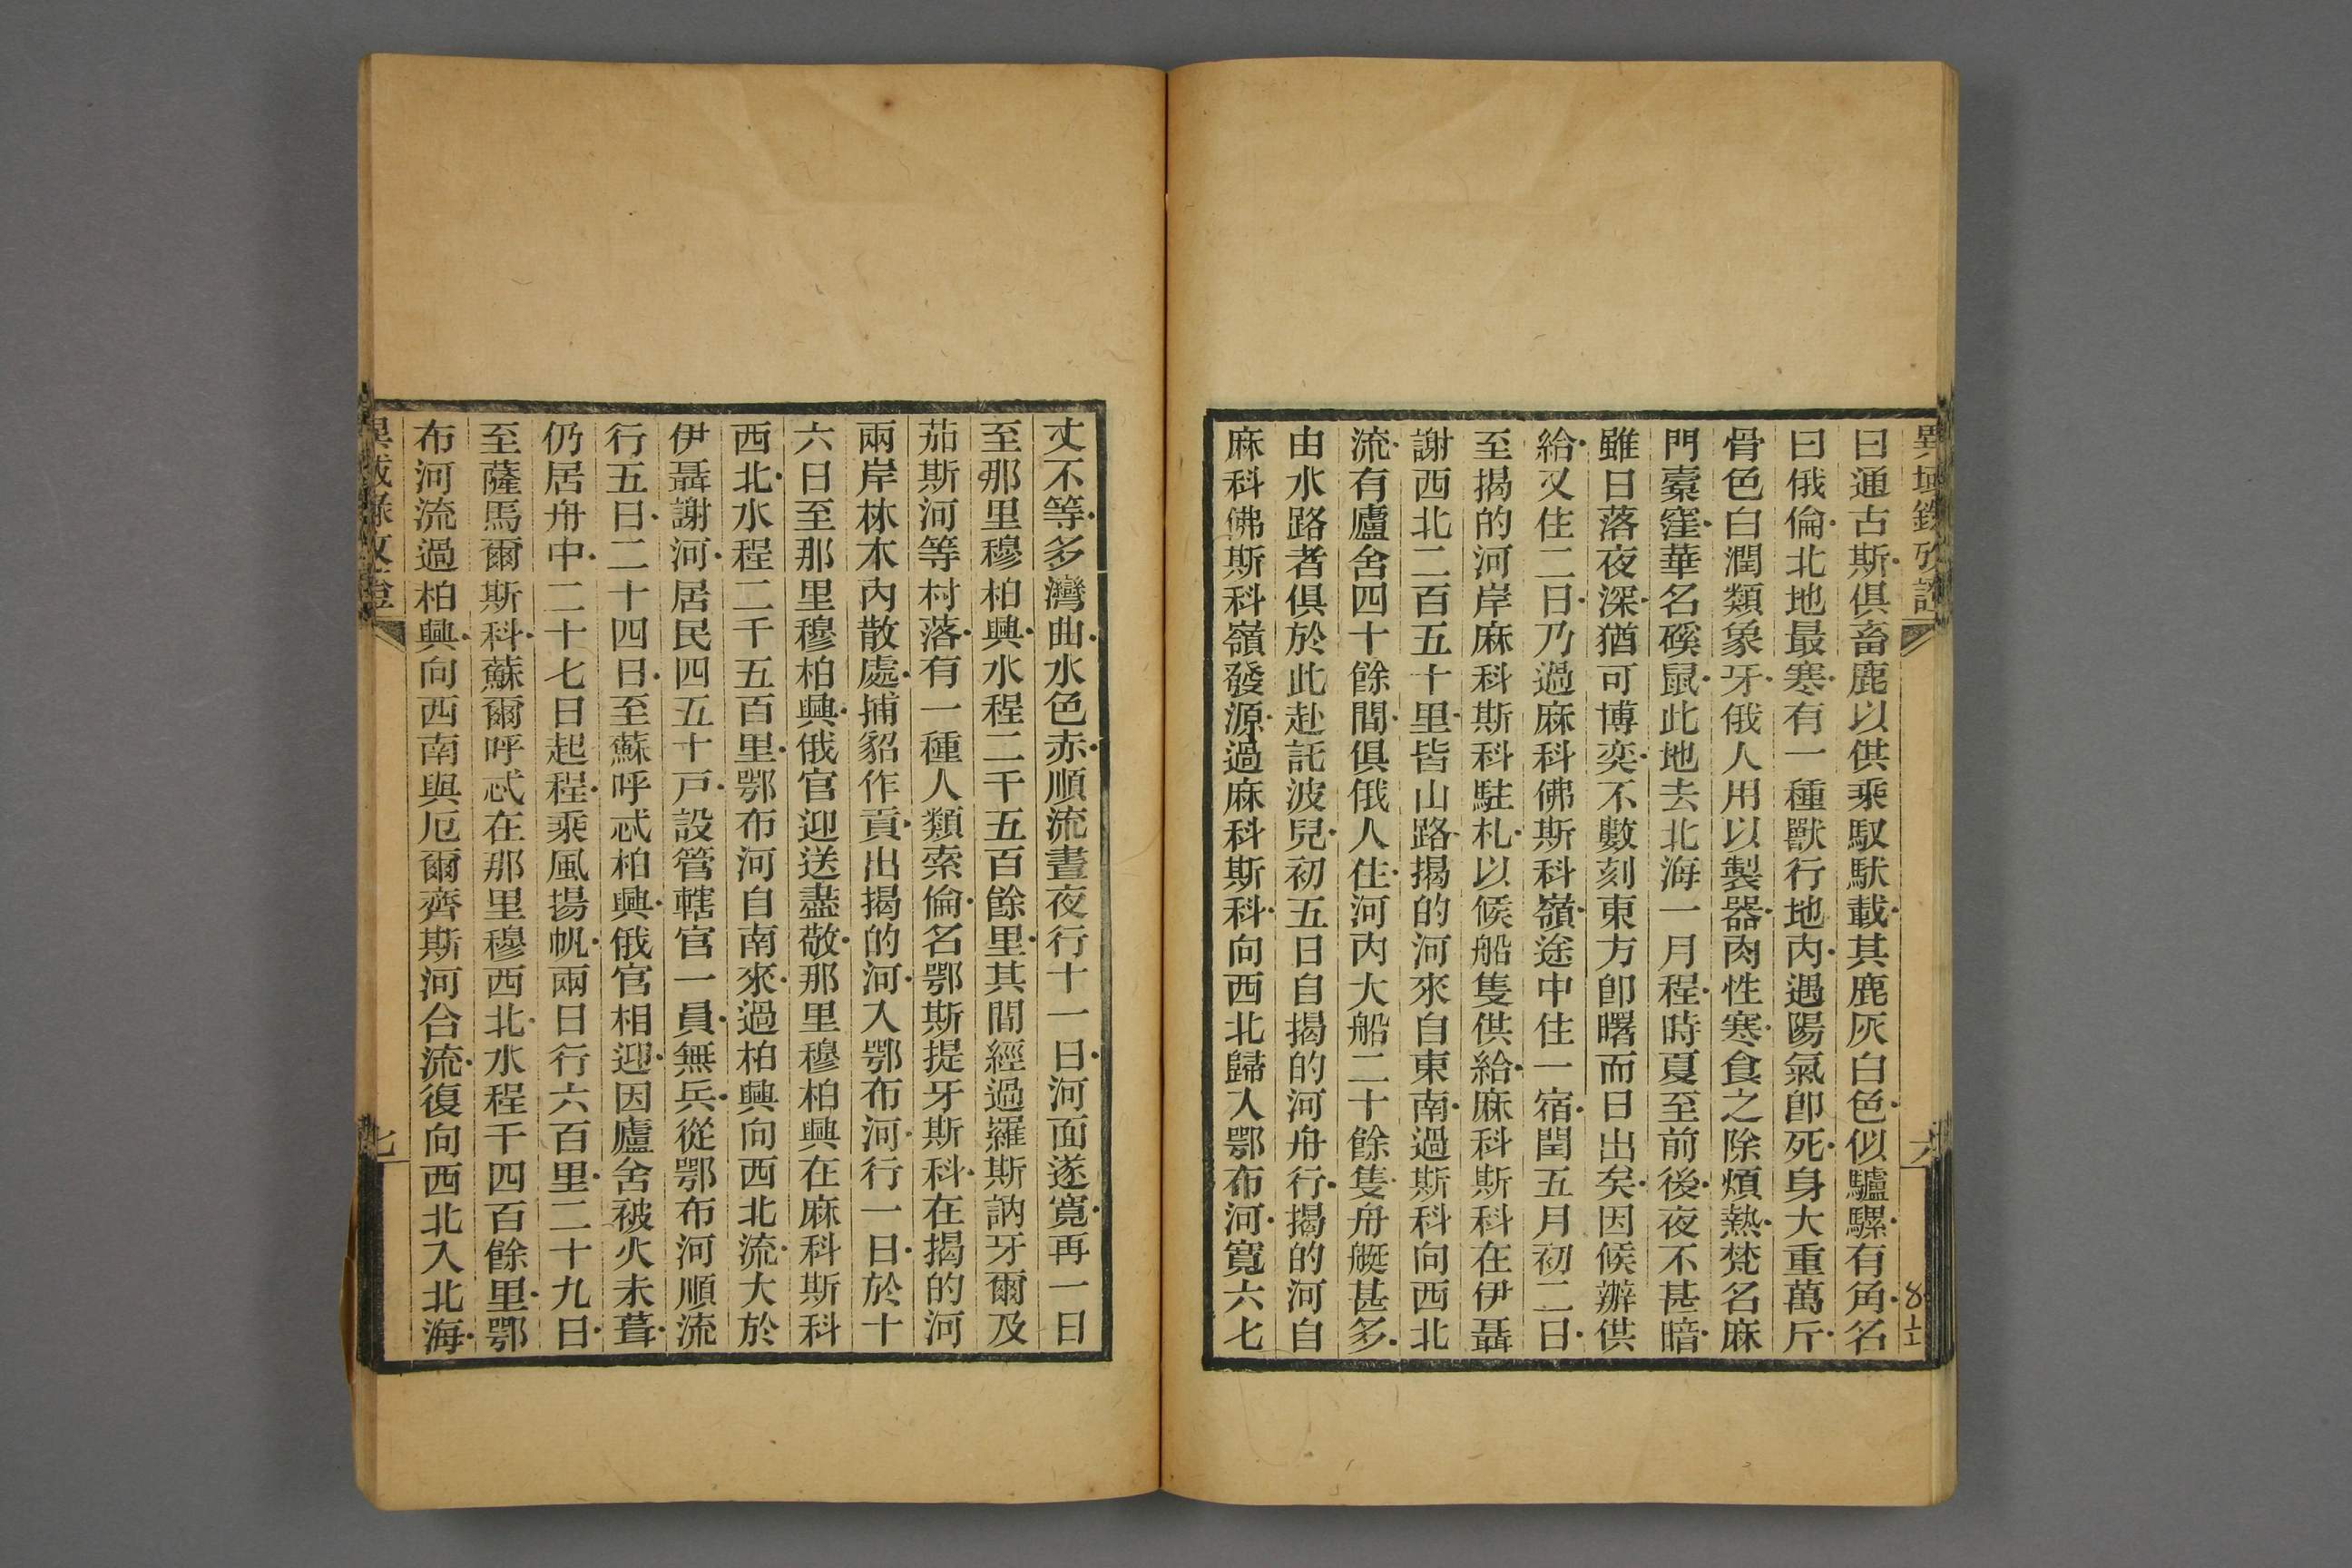 異域錄攷證
六
曰通古斯俱畜鹿以供乘馭馱載其鹿灰白色似驢騾有角名
曰俄倫北地最寒有一種獸行地內遇陽氣卽死身大重萬斤
骨色白潤類象牙俄人用以製器肉性寒食之除煩熱梵名麻
門槖窪華名磎鼠此地去北海一月程時夏至前後夜不甚暗
雖日落夜深猶可博奕不數刻東方卽曙而日出矣因候辦供
給又住二日乃過麻科佛斯科嶺途中住一宿閏五月初二日
至揭的河岸麻科斯科駐札以候船隻供給麻科斯科在伊聶
謝西北二百五十里皆山路揭的河來自東南過斯科向西北
流有廬舍四十餘間俱俄人住河內大船二十餘隻舟艇甚多
由水路者俱於此赴託波兒初五日自揭的河舟行揭的河自
麻科佛斯科嶺發源過麻科斯科向西北歸入鄂布河寬六七
丈不等多灣曲水色赤順流晝夜行十一日河面遂寬再一日
至那里穆柏興水程二千五百餘里其間經過羅斯訥牙爾及
茄斯河等村落有一種人類索倫名鄂斯提牙斯科在揭的河
兩岸林木內散處捕貂作貢出揭的河入鄂布河行一日於十
六日至那里穆柏興俄官迎送盡敬那里穆柏興在麻科斯科
西北水程二千五百里鄂布河自南來過柏興向西北流大於
伊聶謝河居民四五十戶設管轄官一員無兵從鄂布河順流
行五日二十四日至蘇呼忒柏興俄官相迎因廬舍被火未葺
仍居舟中二十七日起程乘風揚帆兩日行六百里二十九日
至薩馬爾斯科蘇爾呼忒在那里穆西北水程千四百餘里鄂
布河流過柏興向西南與厄爾齊斯河合流復向西北入北海
異域錄攷證
七